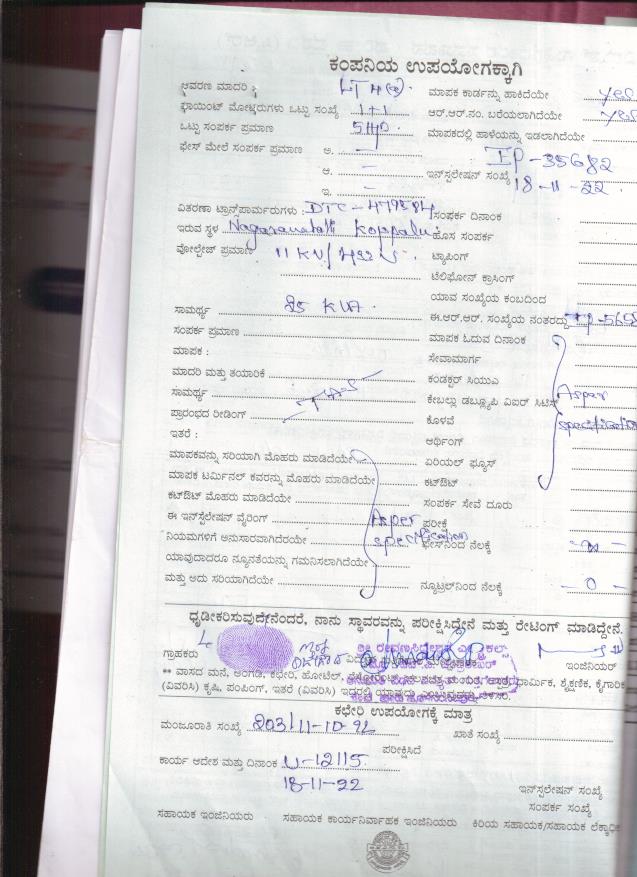 ಕಂಪನಿಯ ಉಪಯೋಗಕ್ಕಾಗಿ
ಆವರಣ ಮಾದರಿ : LT 4(a). ಮಾಪಕ ಕಾರ್ಡನ್ನು ಹಾಕಿದೆಯೇ yes
ಫ್ಲಾಯಿಂಟ್ ಮೋಟ್ಟರುಗಳು ಒಟ್ಟು ಸಂಖ್ಯೆ 1+1 ಆರ್.ಆರ್.ನಂ. ಬರೆಯಲಾಗಿದೆಯೇ yes
ಒಟ್ಟು ಸಂಪರ್ಕ ಪ್ರಮಾಣ 5HP. ಮಾಪಕದಲ್ಲಿ ಹಾಳೆಯನ್ನು ಇಡಲಾಗಿದೆಯೇ
ಫೇಸ್ ಮೇಲೆ ಸಂಪರ್ಕ ಪ್ರಮಾಣ ಅ. —
IP-35682
ಆ. — ಇನ್‌ಸ್ಟಲೇಷನ್ ಸಂಖ್ಯೆ
ಇ. — 18-11-22
ವಿತರಣಾ ಟ್ರಾನ್ಸ್‌ಪಾರ್ಮರುಗಳು : DTC- ಸಂಪರ್ಕ ದಿನಾಂಕ
ಇರುವ ಸ್ಥಳ Koppalu. ಹೊಸ ಸಂಪರ್ಕ
ವೋಲ್ಟೇಜ್ ಪ್ರಮಾಣ 11KV/ ಟ್ಯಾಪಿಂಗ್
ಟೆಲಿಫೋನ್ ಕ್ರಾಸಿಂಗ್
ಯಾವ ಸಂಖ್ಯೆಯ ಕಂಬದಿಂದ
ಸಾಮರ್ಥ್ಯ 25 KVA. ಈ.ಆರ್.ಆರ್. ಸಂಖ್ಯೆಯ ನಂತರದ್ದು
ಸಂಪರ್ಕ ಪ್ರಮಾಣ ಮಾಪಕ ಓದುವ ದಿನಾಂಕ
ಮಾಪಕ : ಸೇವಾಮಾರ್ಗ
ಮಾದರಿ ಮತ್ತು ತಯಾರಿಕೆ ಕಂಡಕ್ಟರ್ ಸಿಯುಎ
ಸಾಮರ್ಥ್ಯ ಕೇಬಲ್ಲು ಡಬ್ಲ್ಯೂಪಿ ವಿಐರ್ ಸಿಟಿಸಿ Asper
ಪ್ರಾರಂಭದ ರೀಡಿಂಗ್ ಕೊಳವೆ specification
ಇತರೆ : ಆರ್ಥಿಂಗ್
ಮಾಪಕವನ್ನು ಸರಿಯಾಗಿ ಮೊಹರು ಮಾಡಿದೆಯೇ ಏರಿಯಲ್ ಫ್ಯೂಸ್
ಮಾಪಕ ಟರ್ಮಿನಲ್ ಕವರನ್ನು ಮೊಹರು ಮಾಡಿದೆಯೇ ಕಟ್‌ಔಟ್
ಕಟ್‌ಔಟ್ ಮೊಹರು ಮಾಡಿದೆಯೇ ಸಂಪರ್ಕ ಸೇವೆ ದೂರು
ಈ ಇನ್‌ಸ್ಟಲೇಷನ್ ವೈರಿಂಗ್ Asper ಪರೀಕ್ಷೆ
ನಿಯಮಗಳಿಗೆ ಅನುಸಾರವಾಗಿದೆರಯೇ specification ಫೇಸ್‌ನಿಂದ ನೆಲಕ್ಕೆ
ಯಾವುದಾದರೂ ನ್ಯೂನತೆಯನ್ನು ಗಮನಿಸಲಾಗಿದೆಯೇ
ಮತ್ತು ಅದು ಸರಿಯಾಗಿದೆಯೇ ನ್ಯೂಟ್ರಲ್‌ನಿಂದ ನೆಲಕ್ಕೆ -0-
ಧೃಡೀಕರಿಸುವುದೇನೆಂದರೆ, ನಾನು ಸ್ಥಾವರವನ್ನು ಪರೀಕ್ಷಿಸಿದ್ದೇನೆ ಮತ್ತು ರೇಟಿಂಗ್ ಮಾಡಿದ್ದೇನೆ.
ಗ್ರಾಹಕರು ಇಂಜಿನಿಯರ್
** ವಾಸದ ಮನೆ, ಅಂಗಡಿ, ಕಛೇರಿ, ಹೋಟೆಲ್, ಧಾರ್ಮಿಕ, ಶೈಕ್ಷಣಿಕ, ಕೈಗಾರಿಕ
(ವಿವರಿಸಿ) ಕೃಷಿ, ಪಂಪಿಂಗ್, ಇತರೆ (ವಿವರಿಸಿ) ಇದರಲ್ಲಿ
ಕಛೇರಿ ಉಪಯೋಗಕ್ಕೆ ಮಾತ್ರ
ಮಂಜೂರಾತಿ ಸಂಖ್ಯೆ ಖಾತೆ ಸಂಖ್ಯೆ
ಪರೀಕ್ಷಿಸಿದೆ
ಕಾರ್ಯ ಆದೇಶ ಮತ್ತು ದಿನಾಂಕ U-12115.
18-11-22 ಇನ್‌ಸ್ಟಲೇಷನ್ ಸಂಖ್ಯೆ
ಸಂಪರ್ಕ ಸಂಖ್ಯೆ
ಸಹಾಯಕ ಇಂಜಿನಿಯರು ಸಹಾಯಕ ಕಾರ್ಯನಿರ್ವಾಹಕ ಇಂಜಿನಿಯರು ಕಿರಿಯ ಸಹಾಯಕ/ಸಹಾಯಕ ಲೆಕ್ಕಾಧಿಕ